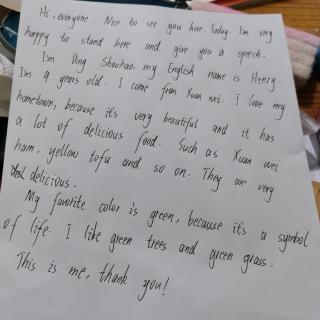 Hi, everyone. Nice to see you here. Today. I'm very
happy to stand here and give you a speech.
I'm Ding Shouhao, my English name is Henry.
I'm 9 years old. I come from Xuan wei. I love my
hometown, because it's very beautiful and it has
a lot of delicious food. Such as Xuan wei
ham, yellow tofu and so on. They are very
delicious.
My favorite color is green, because it's a symbol
of life. I like green trees and green grass.
This is me, thank you!